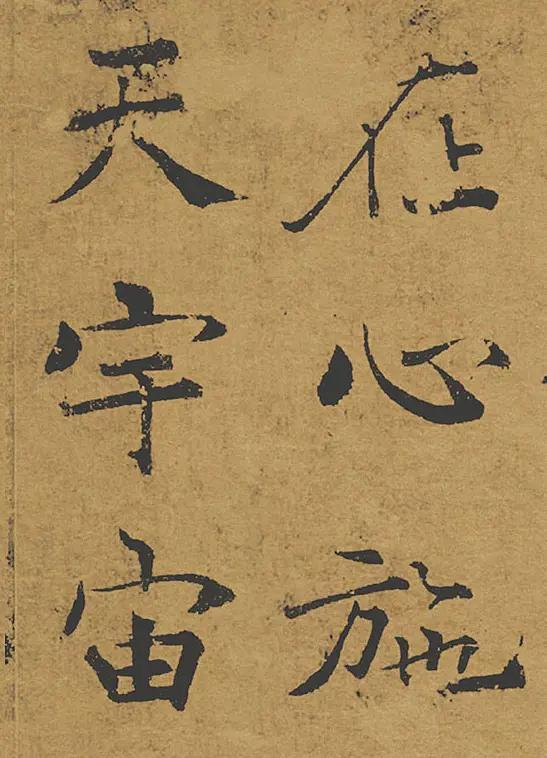 在心施
天宇宙